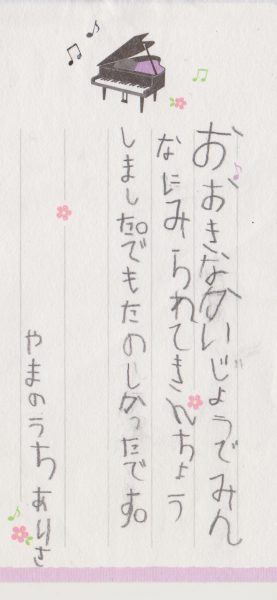 おおきなかいじょうでみん
なにみられてきんちょう
しました。でもたのしかったです。
やまのうちありさ